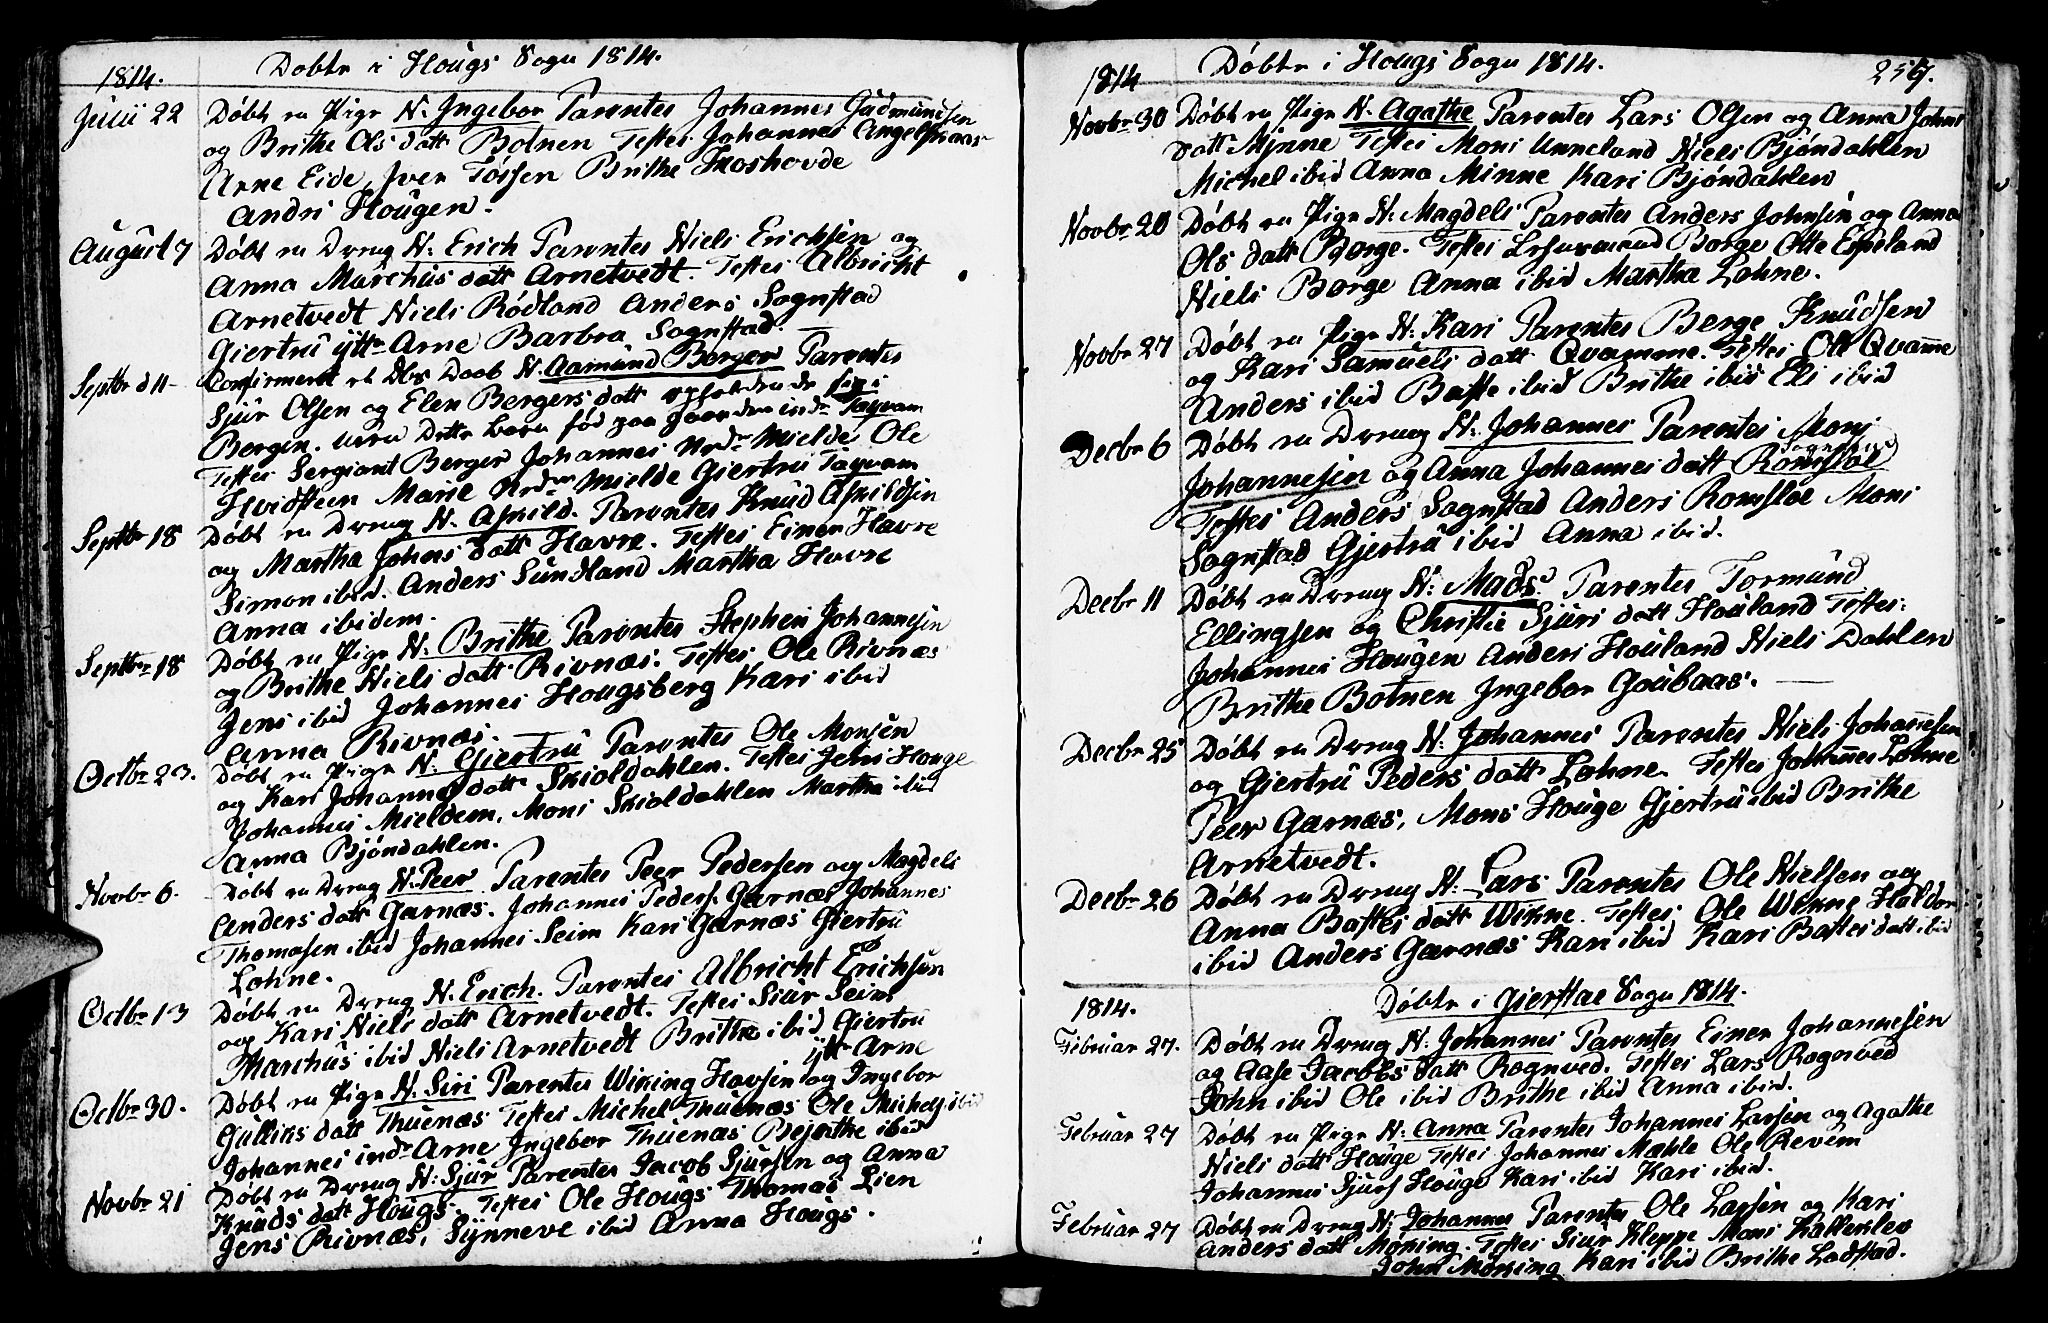 1814.
Døbte i Hougs Sogn 1814.
Junii 22
Døbt en Pige N. Ingebor Parentes Johannes Gudmundsen
og Brithe Ols datt Botnen Testes Johannes Angelskaar
Arne Eide, Iver Tøssen Brithe Hoshovde
Andri Hougen.
August 7
Døbt en Dreng N: Erich Parentes Niels Erichsen og
Anna Marchus datt Arnetvedt. Testes Albricht
Arnetvedt Niels Rødland Anders Sognstad
Giertrü ytt Arne Barbra Sognstad.
Septbr d 11
Confirmeret et Dbs Daab N. Aamund Berger Parentes
Sjur Olsen og Elen Bergers datt opholdende sig i
Bergen. men dette barn fød paa gaarden indr Tayvam
Testes Sergiant Berger Johannes Nrdr Mielde Ole
Hvidsteen Marie Nrdr Mielde Giertrü Tayvam
Septbr 18
Døbt en Dreng N. Askild. Parentes Knud Askildsen
og Martha Johns datt Havre. Testes Einer Havre
Simon ibid. Anders Sundland Martha Havre
Anna ibidem.
Septbr 18
Døbt en Pige N. Brithe Parentes Stephen Johannesen
og Brithe Niels datt Rivnæs. Testes Ole Rivnæs
Jens ibid Johannes Hougsberg Kari ibid
Anna Rivnæs.
Octbr 23.
Døbt en Pige N. Giertrü Parentes Ole Monsen
og Kari Johannes datt Skioldahlen. Testes Jens Houge
Johannes Mieldem, Mons Skioldahlen Martha ibid
Anna Bjøndahlen.
Novbr 6.
Døbt en Dreng N. Peer Parentes Peer Pedersen og Magdeli
Anders datt Garnæs. Johannes Peders. Garnæs Johannes
Thomasen ibid Johannes Seim Kari Garnæs Giertrü
Lohne.
Octbr 13
Døbt en Dreng N. Erich. Parentes Albricht Erichsen
og Kari Niels datt Arnetvedt. Testes Siur Seim
Marchus ibid Niels Arnetvedt Brithe ibid Giertrü
ytt Arne
Octbr 30.
Døbt en Pige N. Siri Parentes Wiking Havsen og Ingebor
Gulliks datt Thuenæs Testes Michel Thuenæs Ole Michels. ibid
Johannes indr Arne Ingebor Thuenæs Brithe ibid
Novbr 21
Døbt en Dreng N: Sjur Parentes Jacob Sjursen og Anna
Knuds datt Hougs. Testes Ole Hougs Thomas Lien
Jens Rivnæs, Synneve ibid Anna Hougs.
1814
Døbte i Hougs Sogn 1814.
257.
Novbr 30
Døbt en Pige N. Agathe Parentes Lars Olsen og Anna Johns
datt Minne Testes Mons Unneland Niels Bjøndahlen
Michel ibid Anna Minne Kari Bjøndahlen
Novbr 20
Døbt en Pige N: Magdeli Parentes Anders Johnsen og Anna
Ols datt Borge. Testes Lehnsmand Borge Otte Espeland
Niels Borge Anna ibid Martha Lohne.
Novbr 27
Døbt en Pige N: Kari Parentes Berge Knudsen
og Kari Samuels datt Qvamme. Testes Ole Qvamme
Anders ibid Baste ibid Brithe ibid Eli ibid
Decbr 6
Døbt en Dreng N: Johannes Parentes Mons
Johannesen og Anna Johannes datt Romsloe
Testes Anders Sognstad Anders Romsloe Mons
Sognstad Gjertrü ibid Anna ibid.
Decbr 11
Døbt en Dreng N: Mads. Parentes Tormund
Ellingsen og Christie Sjurs datt Houland Testes:
Johannes Hougen Anders Houland Niels Dahlen
Brithe Botnen Ingebor Goubaas.
Decbr 25
Døbt en Dreng N: Johannes Parentes Niels Johannesen
og Gjertrü Peders datt Lohne. Testes Johannes Lohne
Peer Garnæs, Mons Houge Gjertrü ibid Brithe
Arnetvedt.
Decbr 26
Døbt en Dreng N: Lars Parentes Ole Nielsen og
Anna Bastes datt Wikne. Testes Ole Wikne Haldor
ibid Anders Garnæs Kari ibid Kari Bastes datt ibid
1814.
Døbte i Gierstae Sogn 1814.
Februar 27.
Døbt en Dreng N: Johannes Parentes Einer Johannesen
og Aase Jacobs datt Rognved. Testes Lars Rognved
John ibid Ole ibid Brithe ibid Anna ibid.
Februar 27
Døbt en Pige N: Anna Parentes Johannes Larsen og Agathe
Niels datt Houge Testes Johannes Mahle Ole Revem
Johannes Sjurs Houge Kari ibid Kari ibid.
Februar 27
Døbt en Dreng N: Johannes Parentes Ole Larsen og Kari
Anders datt Møking. Testes Siur Kleppe Mons Kallekleo
John Møking Kari ibid Brithe Ladstad.